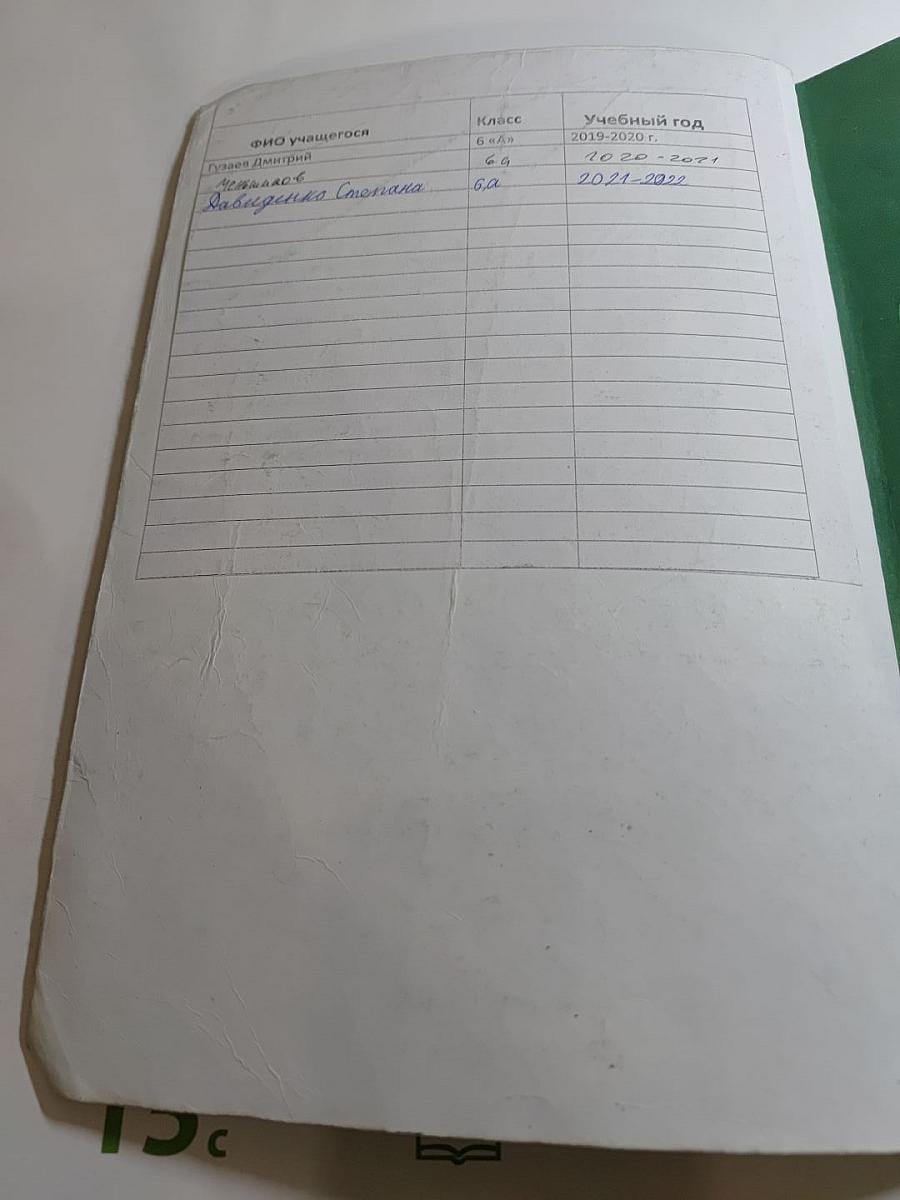 ФИО учащегося Класс Учебный год
Гузаев Дмитрий 6 «А» 2019-2020 г.
Меньшиков 6а 2020-2021
Давиденко Степана 6а 2021-2022
15 с